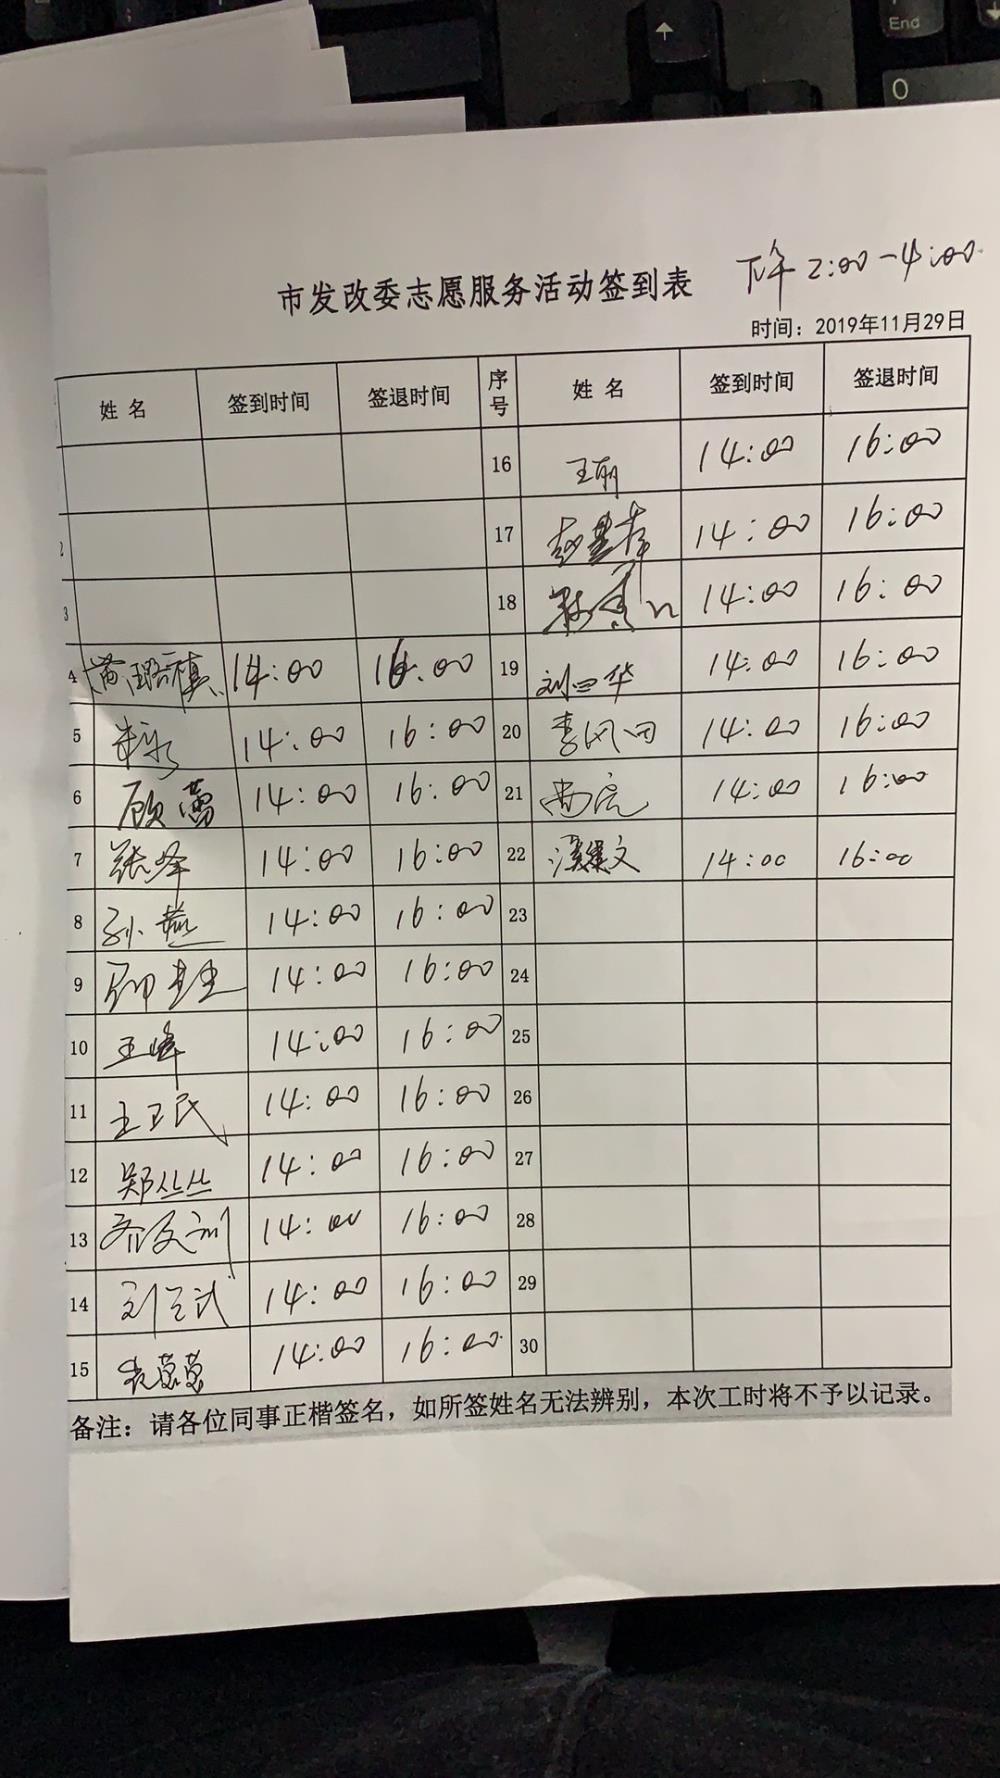 End
O
下午 2:00-4:00
市发改委志愿服务活动签到表
时间：2019年11月29日
姓 名 签到时间 签退时间 序号 姓 名 签到时间 签退时间
16 王丽 14:00 16:00
2 17 14:00 16:00
3 18 14:00 16:00
4 14:00 16:00 19 刘四华 14:00 16:00
5 朱永 14:00 16:00 20 李风田 14:00 16:00
6 顾蕾 14:00 16:00 21 14:00 16:00
7 张峰 14:00 16:00 22 14:00 16:00
8 孙燕 14:00 16:00 23
9 14:00 16:00 24
10 王峰 14:00 16:00 25
11 王卫民 14:00 16:00 26
12 郑丛丛 14:00 16:00 27
13 14:00 16:00 28
14 14:00 16:00 29
15 14:00 16:00 30
备注：请各位同事正楷签名，如所签姓名无法辨别，本次工时将不予以记录。